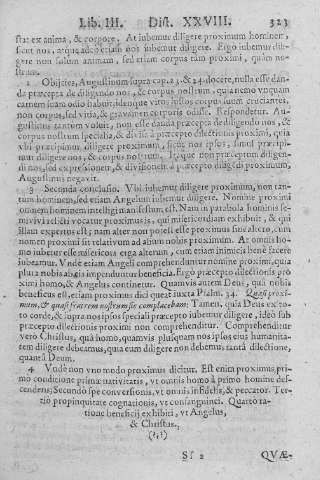 Lib. III. Dist. XXVIII. 323
stat ex anima, & corpore. At iubemur diligere proximum hominem,
sicut nos, atque adeo etiam nos iubemur diligere. Ergo iubemur dili-
gere non solum animam, sed etiam corpus tam proximi, quam no-
strum.
2 Obijcies, Augustinum supra cap. 23. & 24. docere, nulla esse dan-
da præcepta diligendo nos, & corpus nostrum, quia nemo unquam
carnem suam odio habuit, idenque viros iustos corpus suum cruciantes,
non corpus, sed vitia, & gravamen corporis odisse. Respondetur. Au-
gustinus tantum voluit, non esse danda præcepta de diligendo nos, &
corpus nostrum specialia, & divisa à præcepto dilectionis proximi, quia
ubi præcipimur diligere proximum, sicut nos ipsos, simul præcipi-
mur diligere nos, & corpus nostrum. Itaque non præceptum diligen-
di nos, sed expressionem, & divisionem à præcepto diligendi proximum,
Augustinus negavit.
3 Secunda conclusio. Vbi iubemur diligere proximum, non tan-
tum hominem, sed etiam Angelum iubemur diligere. Nomine proximi
omnem hominem intelligi manifestum est. Nam in parabola hominis se-
mivivi relicti vocatur proximus is, qui misericordiam exhibuit, & qui
illam expertus est; nam alter non potest esse proximus sine altero, cum
nomen proximi sit relativum ad alium nobis proximum. At omnis ho-
mo iubetur esse misericors erga alterum, cum etiam inimicis benè facere
iubeamur. Vnde etiam Angeli comprehendantur nomine proximi, quia
plura nobis ab eis impenduntur beneficia. Ergò præcepto dilectionis pro
ximi homo, & Angelus continetur. Quamvis autem Deus, quia nobis
beneficus est, etiam proximus dici queat iuxta Psalm. 34. Quasi proxi-
mum, & quasi fratrem nostrum sic complacebam: Tamen, quia Deus ex to
to corde, & supra nos ipsos speciali præcepto iubemur diligere, ideò sub
præcepto dilectionis proximi non comprehenditur. Comprehenditur
verò Christus, quà homo, quamvis plusquam nos ipsos eius humanita-
tem diligere debeamus, quia eum diligere non debemus, tantâ dilectione,
quantâ Deum.
4 Vnde non uno modo proximus dicitur. Est enim proximus, pri-
mo conditione primæ nativitatis, ut omnis homo à primo homine des-
cendens; Secundò spe conversionis, ut omnis infidelis, & peccator. Ter-
tio propinquitate cognationis, ut consanguinei. Quartò ra-
tione beneficij exhibiti, ut Angelus,
& Christus.
Sf 2 QVÆ-